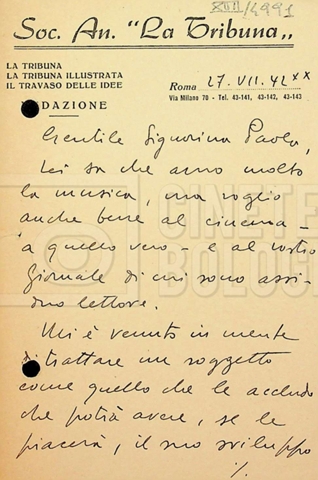 XVII/4991
Soc. An. "La Tribuna„
LA TRIBUNA
LA TRIBUNA ILLUSTRATA
IL TRAVASO DELLE IDEE
REDAZIONE
Roma 27.VII.42 XX
Via Milano 70 - Tel. 43-141, 43-142, 43-143
Gentile Signorina Paola,
Lei sa che amo molto
la musica, ma voglio
anche bene al cinema -
a quello vero - e al vostro
Giornale di cui sono assi-
duo lettore.
Mi è venuto in mente
di trattare un soggetto
come quello che le accludo
che potrà avere, se le
piacerà, il suo sviluppo
./.
CINETE
BOLOG